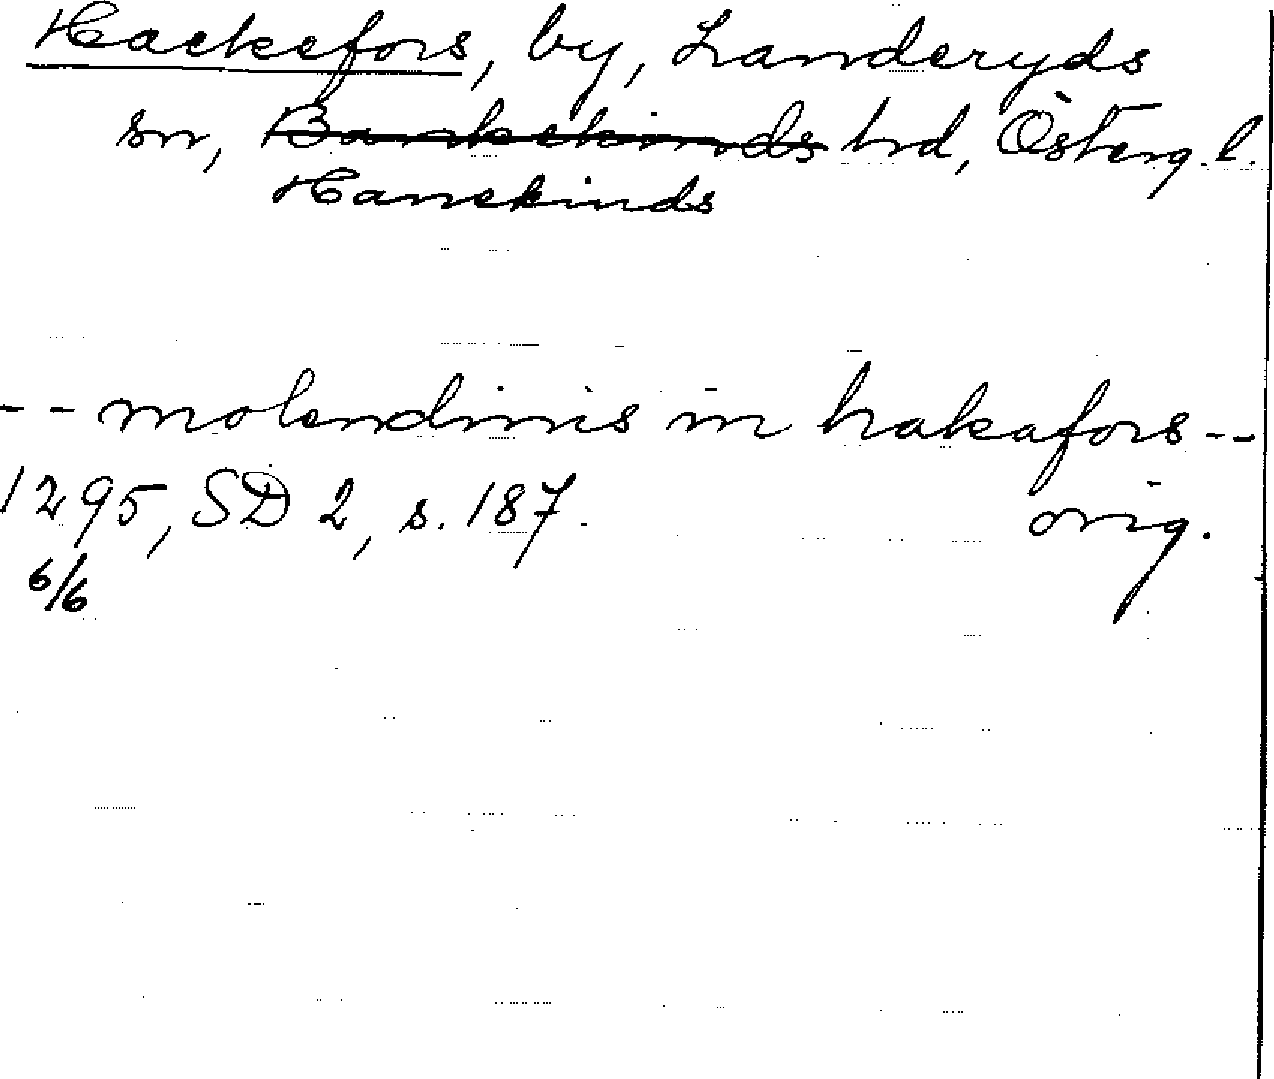 Hackefors, by, Landeryds
sn, Bankekinds hrd, Österg. l.
Hanekinds
-- molendinis in hakafors --
1295, SD 2, s. 187. orig.
6/6